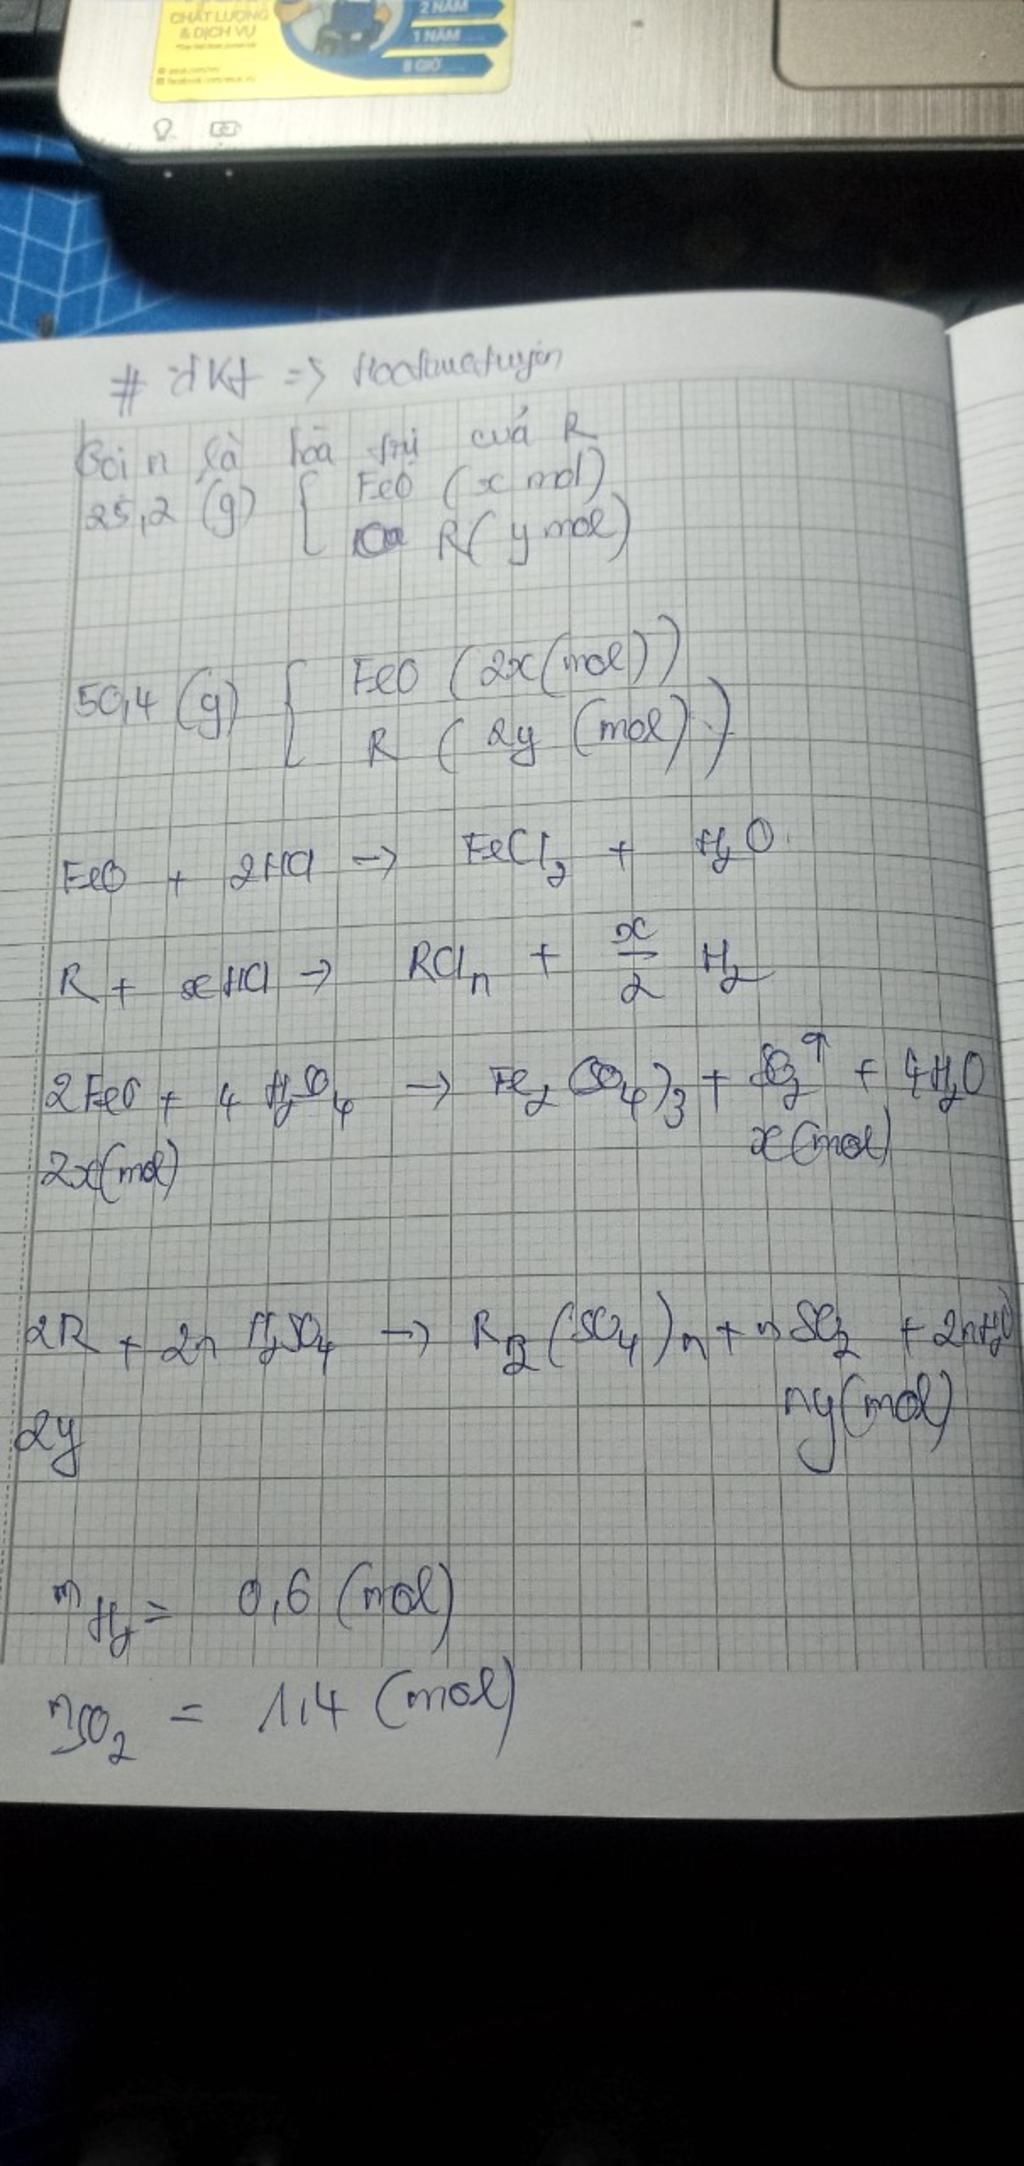 CHẤT LƯỢNG
& DỊCH VỤ
2 NĂM
1 NĂM
8 GIỜ
# dKt => Hoctructuyen
Gọi n là hoá trị của R
25,2 (g) { FeO (x mol)
R ( y mol)
50,4 (g) { FeO (2x(mol))
R ( 2y (mol).)
FeO + 2HCl -> FeCl₂ + H₂O.
R + xHCl -> RCln + x/2 H₂
2FeO + 4 H₂SO₄ -> Fe₂(SO₄)₃ + SO₂↑ + 4H₂O
2x(mol) x(mol)
2R + 2n H₂SO₄ -> R₂(SO₄)n + n SO₂ + 2nH₂O
2y ny(mol)
nH₂ = 0,6 (mol)
nSO₂ = 1,4 (mol)